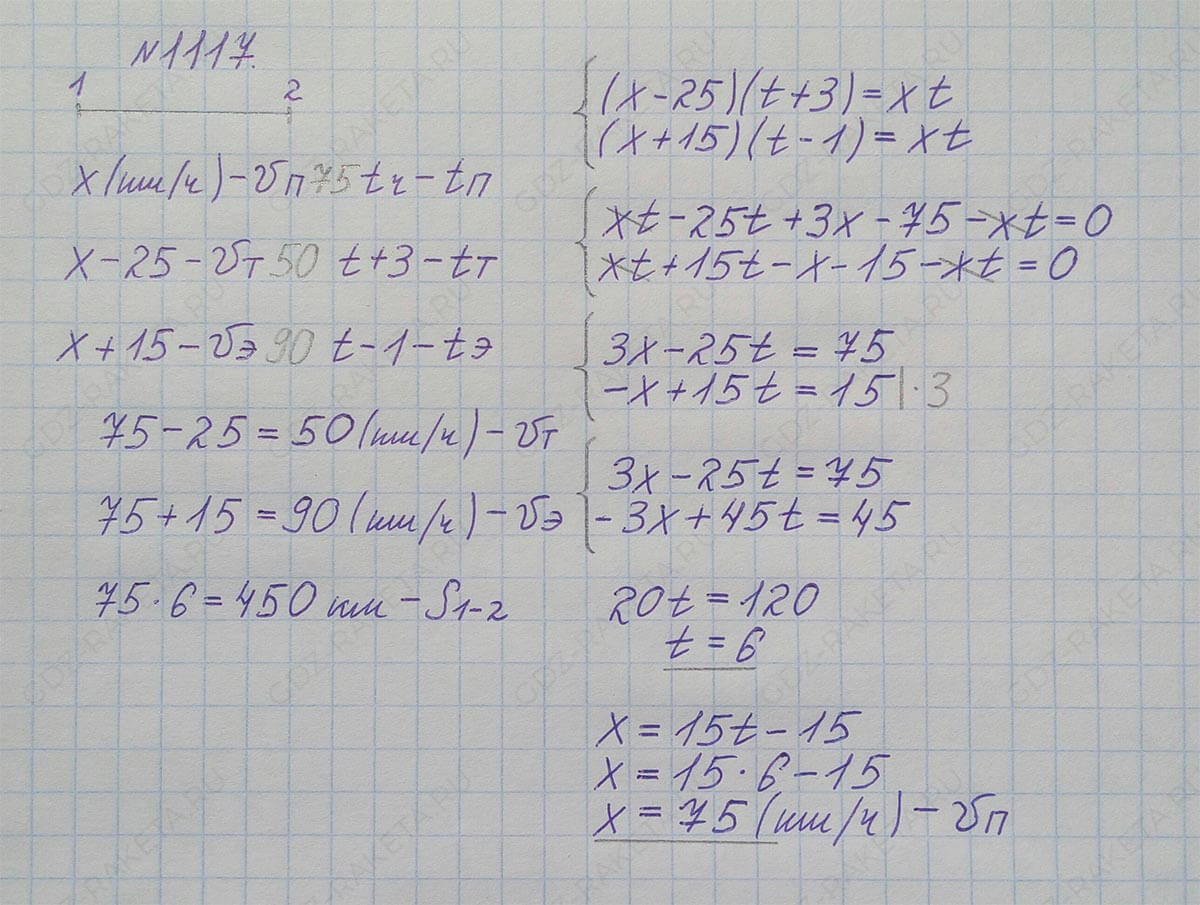 N1117.
1 2
x(км/ч)-vп 75 tч-tп
x-25-vт 50 t+3-tт
x+15-vэ 90 t-1-tэ
75-25=50(км/ч)-vт
75+15=90(км/ч)-vэ
75·6=450км-S1-2
(x-25)(t+3)=xt
(x+15)(t-1)=xt
xt-25t+3x-75-xt=0
xt+15t-x-15-xt=0
3x-25t=75
-x+15t=15|·3
3x-25t=75
-3x+45t=45
20t=120
t=6
x=15t-15
x=15·6-15
x=75(км/ч)-vп
GDZ-RAKETA.RU